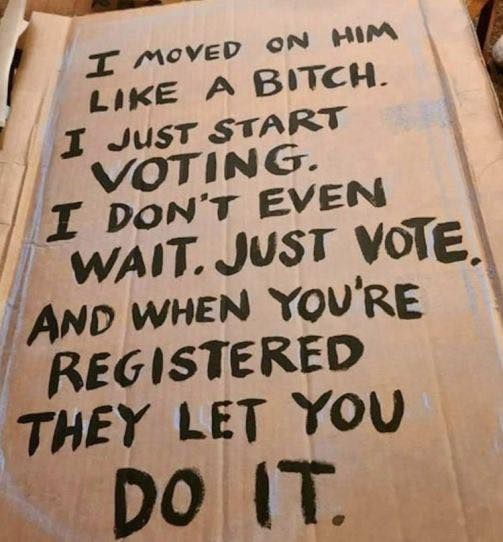 I MOVED ON HIM
LIKE A BITCH.
I JUST START
VOTING.
I DON'T EVEN
WAIT. JUST VOTE.
AND WHEN YOU'RE
REGISTERED
THEY LET YOU
DO IT.